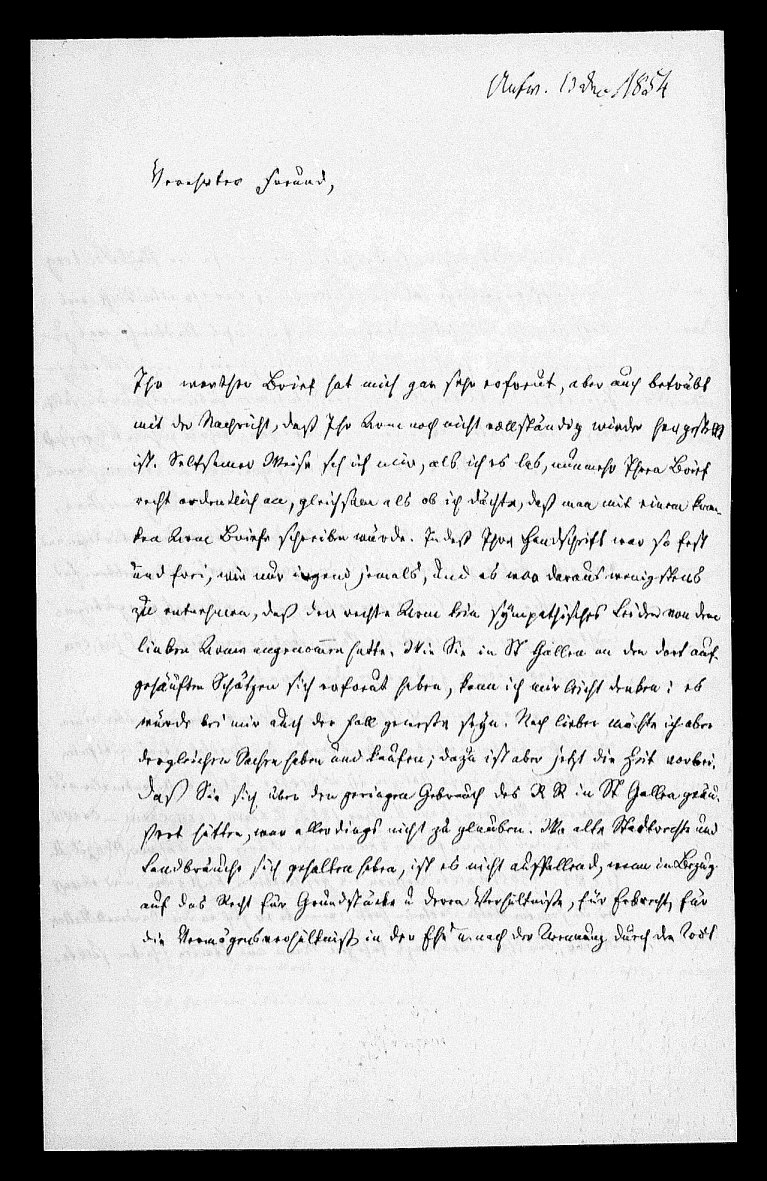 Antw. 13 Dec. 1854
Verehrter Freund,
Ihr werther Brief hat mich gar sehr erfreut, aber auch betrübt
mit der Nachricht, daß Ihr Arm noch nicht vollständig wieder hergestellt
ist. Seltsamer Weise sah ich mir, als ich es las, nunmehr Ihren Brief
recht ordentlich an, gleichsam als ob ich dächte, daß man mit einem kran-
ken Arm Briefe schreiben würde. Indeß Ihre Handschrift war so fest
und frei, wie nur irgend jemals, und es war daraus wenigstens
zu entnehmen, daß der rechte Arm kein sympathisches Leiden von dem
linken Arme angenommen hatte. Wie Sie in St Gallen an den dort auf-
gehäuften Schätzen sich erfreut haben, kann ich mir leicht denken; es
würde bei mir auch der Fall gewesen seyn. Noch lieber möchte ich aber
dergleichen Sachen haben und kaufen; dazu ist aber jetzt die Zeit vorbei.
Daß Sie sich über den geringen Gebrauch des R R in St Gallen geäu-
ßert hätten, war allerdings nicht zu glauben. Wo alte Stadtrechte und
Landbräuche sich gehalten haben, ist es nicht auffallend, wenn in Bezug
auf das Recht für Grundstücke u deren Verhältniße, für Erbrecht, für
die Vermögensverhältniß in der Ehe u. nach der Trennung durch den Tod